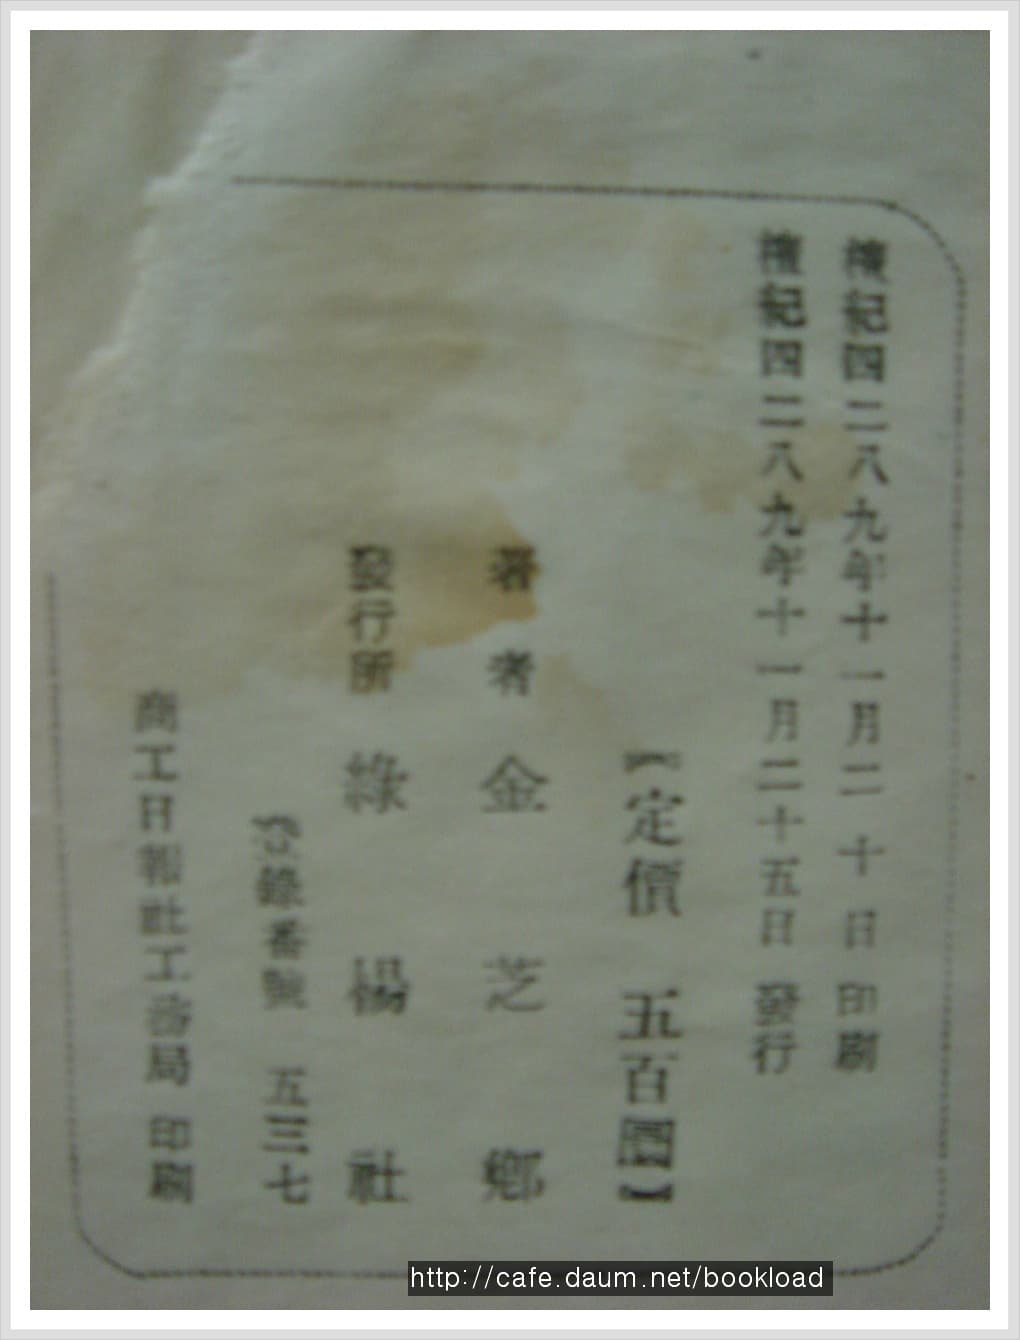 檀紀四二八九年十一月二十日 印刷
檀紀四二八九年十一月二十五日 發行
【定價 五百圜】
著者 金芝鄕
發行所 綠楊社
登錄番號 五三七
商工日報社工務局 印刷
http://cafe.daum.net/bookload